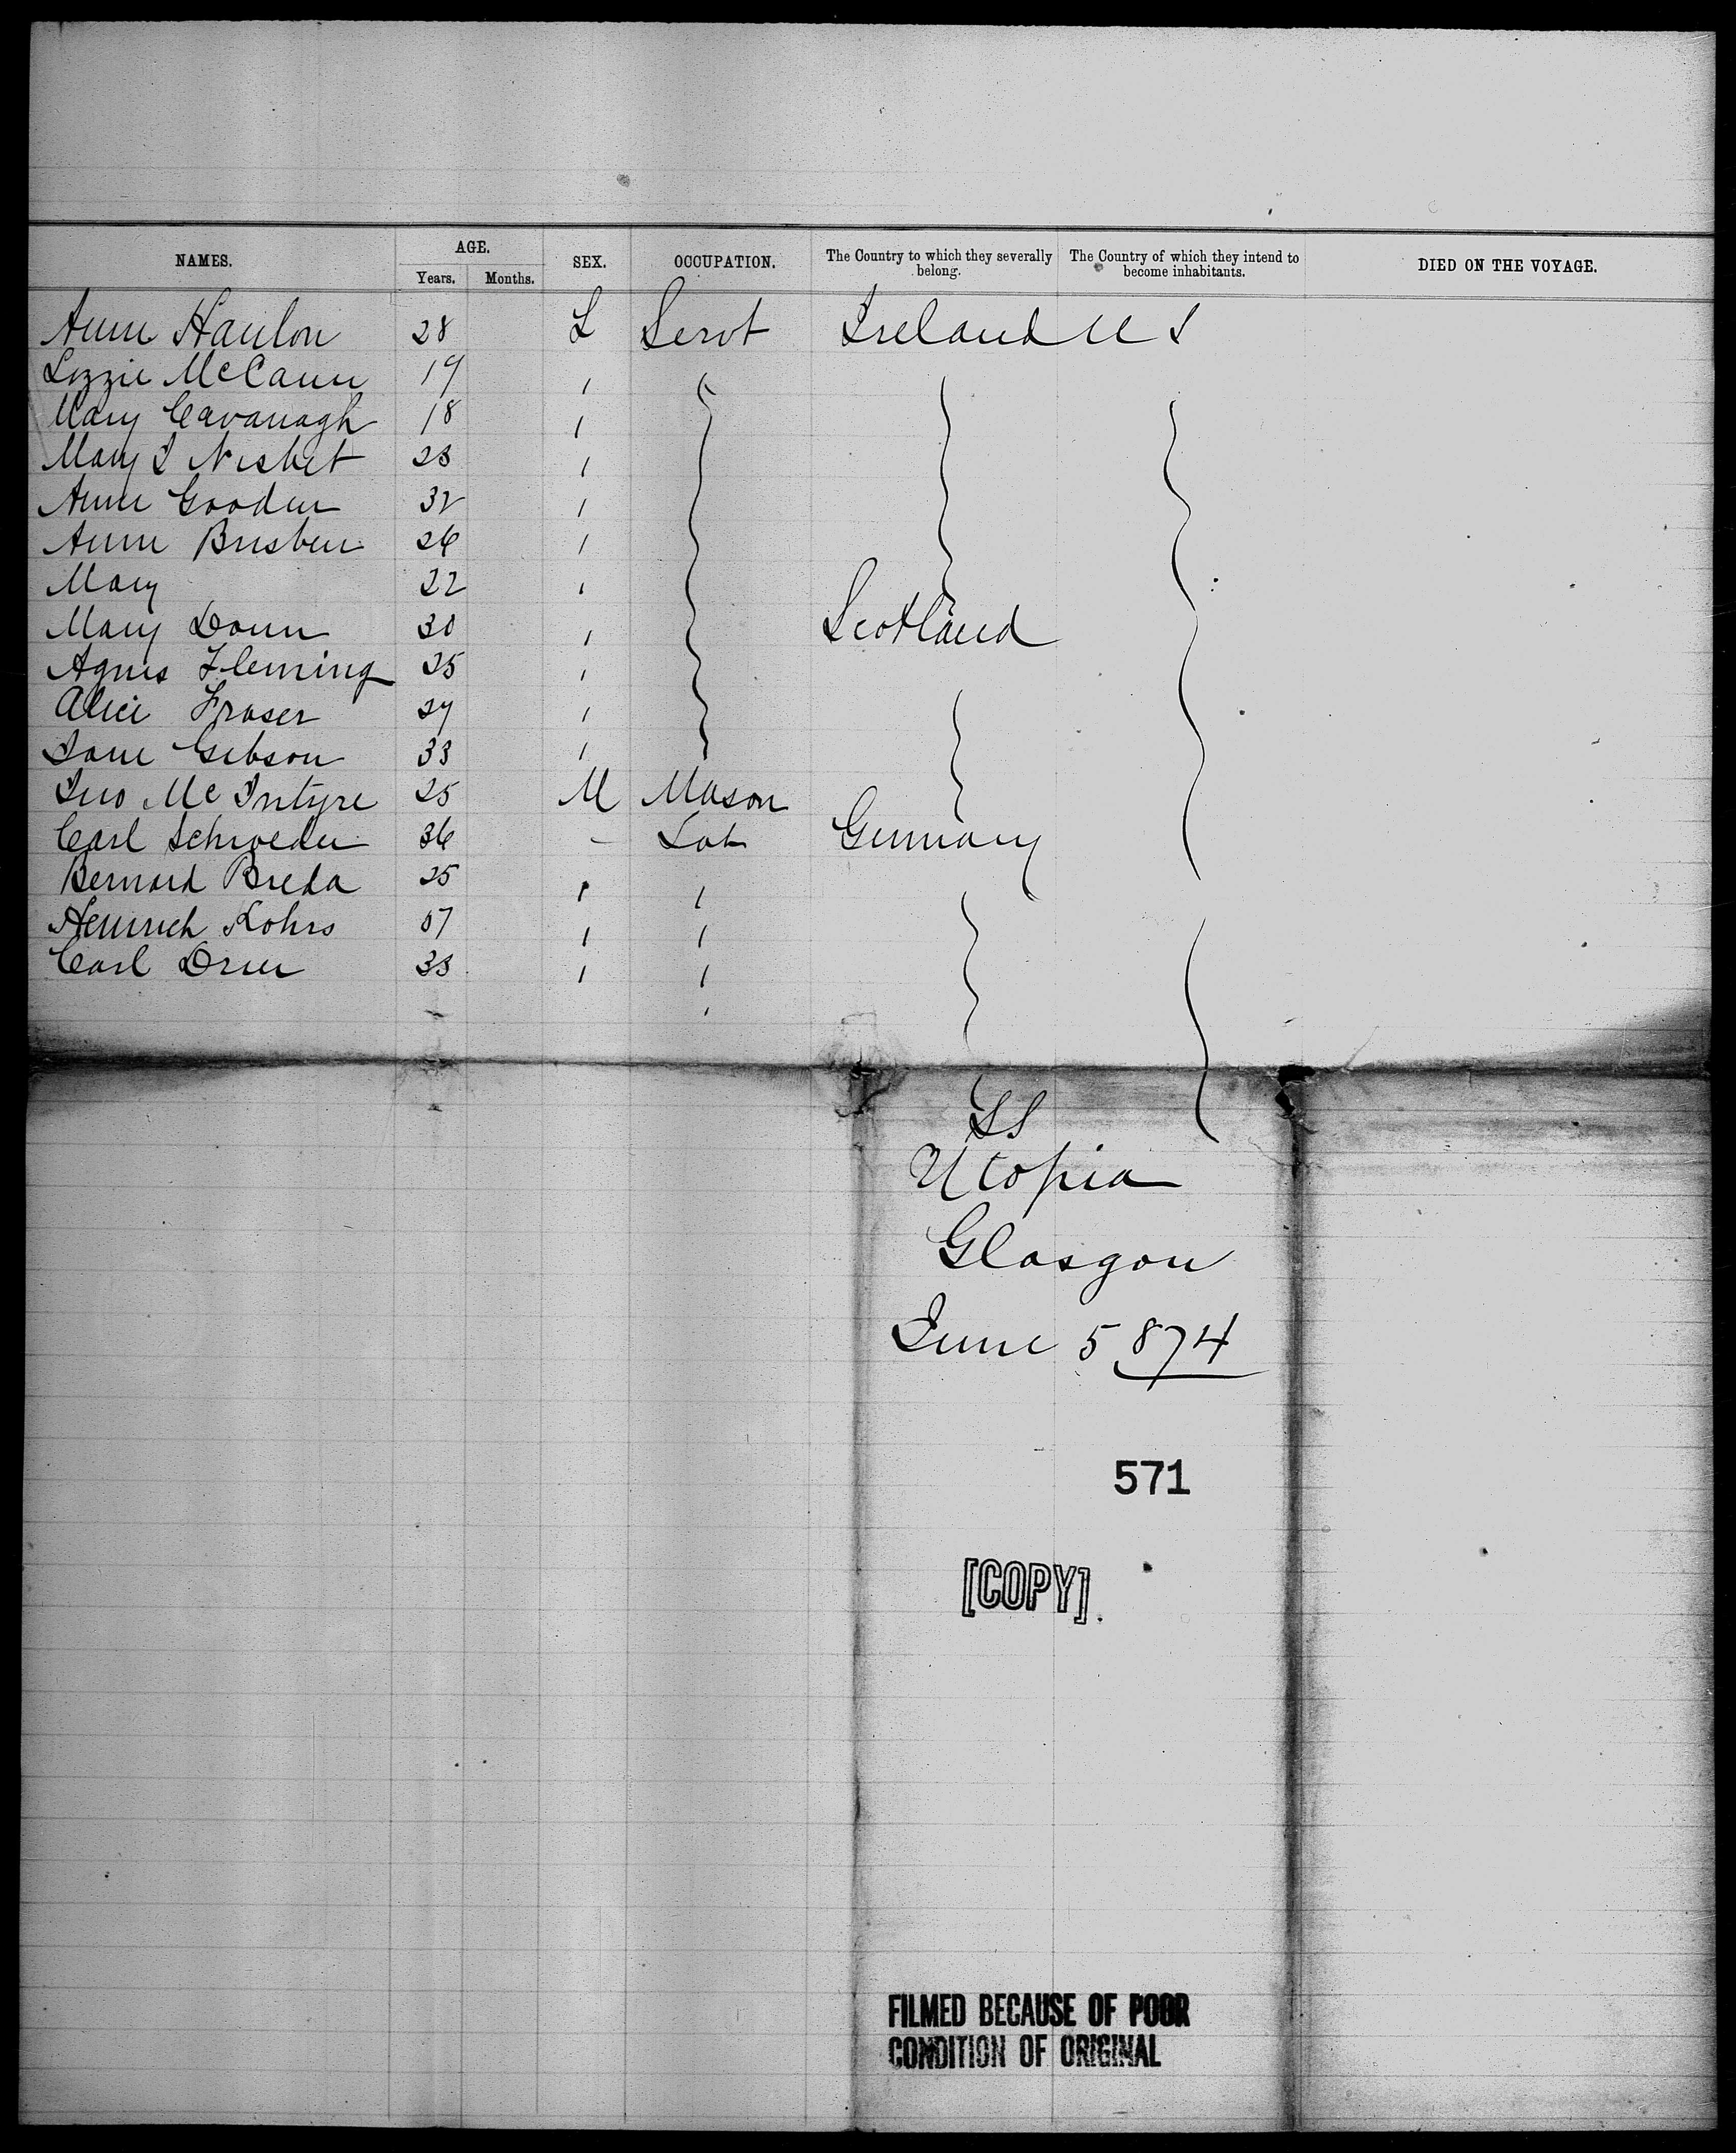 NAMES. AGE. SEX. OCCUPATION. The Country to which they severally belong. The Country of which they intend to become inhabitants. DIED ON THE VOYAGE.
Years. Months.
Anne Hanlon 28 F Servt Ireland U S
Lizzie McCann 19 "
Mary Cavanagh 18 "
Mary J Nisbet 23 "
Anne Gooden 32 "
Anne Brisben 26 "
Mary 22 "
Mary Donn 30 " Scotland
Agnes Fleming 25 "
Alice Fraser 27 "
Jane Gibson 33 "
Jno McIntyre 25 M Mason
Carl Schroeder 36 " Lab Germany
Bernard Breda 25 " "
Heinrich Kohrs 57 " "
Carl Drier 33 " "
SS
Utopia
Glasgow
June 5 874
571
[COPY].
FILMED BECAUSE OF POOR
CONDITION OF ORIGINAL